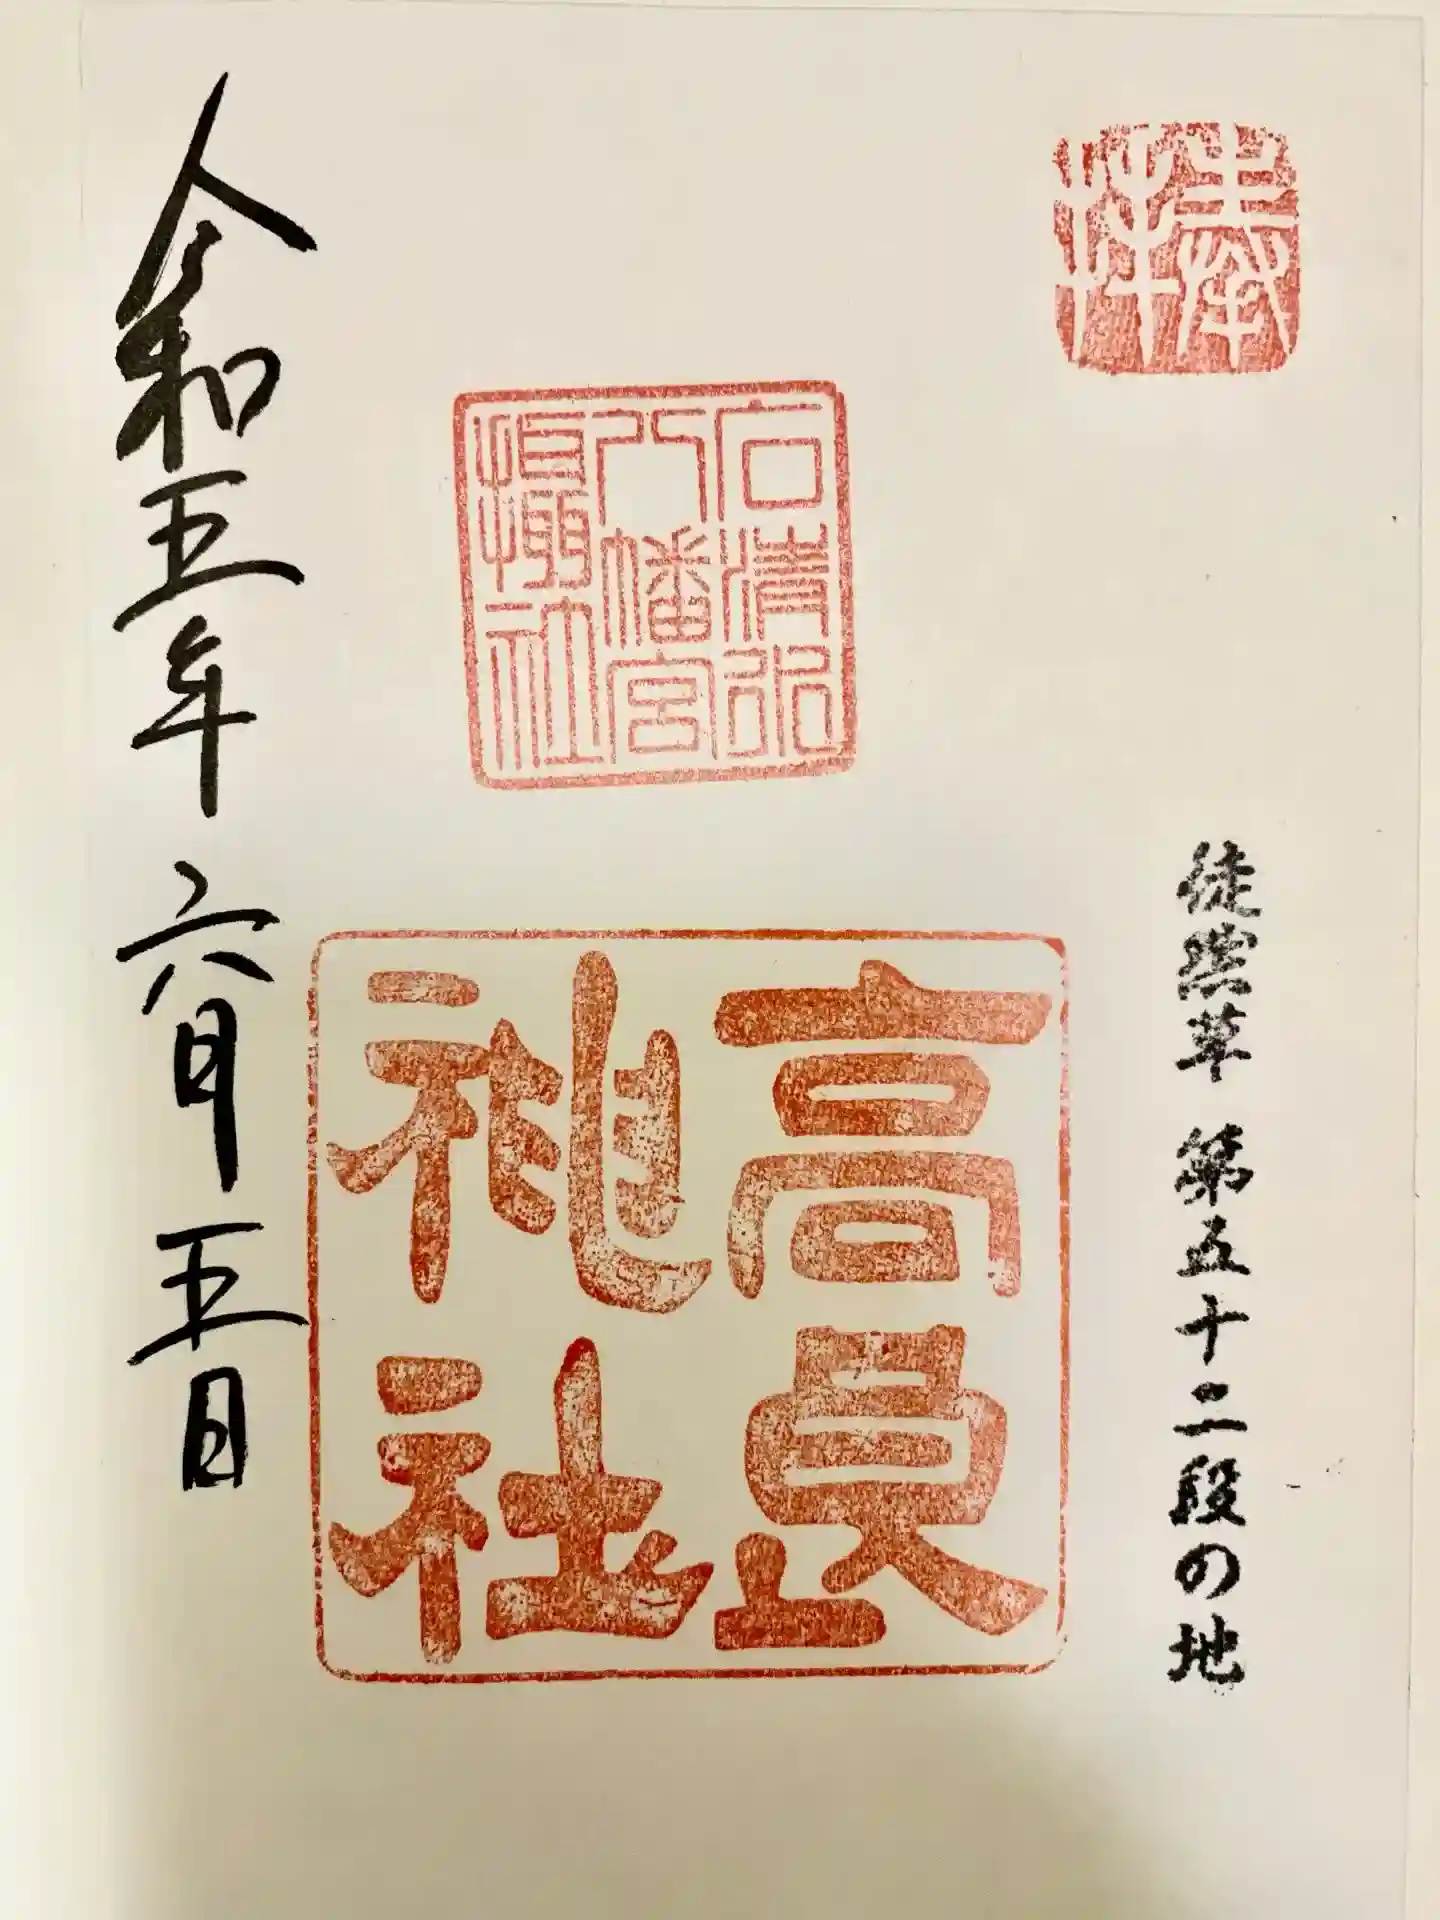 奉拝
徒然草 第五十二段の地
石清水
八幡宮
摂社
高良
神社
令和五年 六月 五日